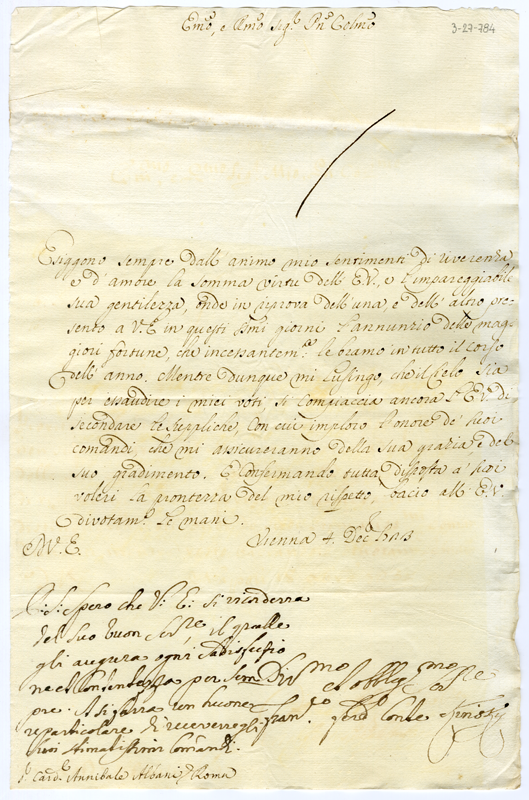 Emo, e Rmo Sigr. Pne. Colmo
3-27-784
Esiggono sempre dall'animo mio sentimenti di riverenza
e d'amore la somma virtù dell'E.V., e l'impareggiabile
sua gentilezza, onde in riprova dell'una, e dell'altro pre-
sento a V.E. in questi Smi giorni l'annunzio delle mag-
giori fortune, che incessantemte. le bramo in tutto il corso
dell'anno. Mentre dunque mi lusingo, che il Cielo sia
per essaudire i miei voti si compiaccia ancora l'E.V. di
secondare le suppliche, con cui imploro l'onore de' suoi
comandi, che mi assicureranno della sua grazia e del
suo gradimento. E confermando tutta disposta a' suoi
voleri la prontezza del mio rispetto, bacio all'E.V.
divotamte. le mani.
Di V.E. Vienna 4. Decbre
spero che V: E: si ricorderra
del suo buon il qualle
gli augura ogni
per sempre
con
particolare di ricevere gli
suoi stimatissimi Comandi.
Divmo ed obbligmo
Ferdo. Conte
Sr. Cardl. Annibale Albani Roma